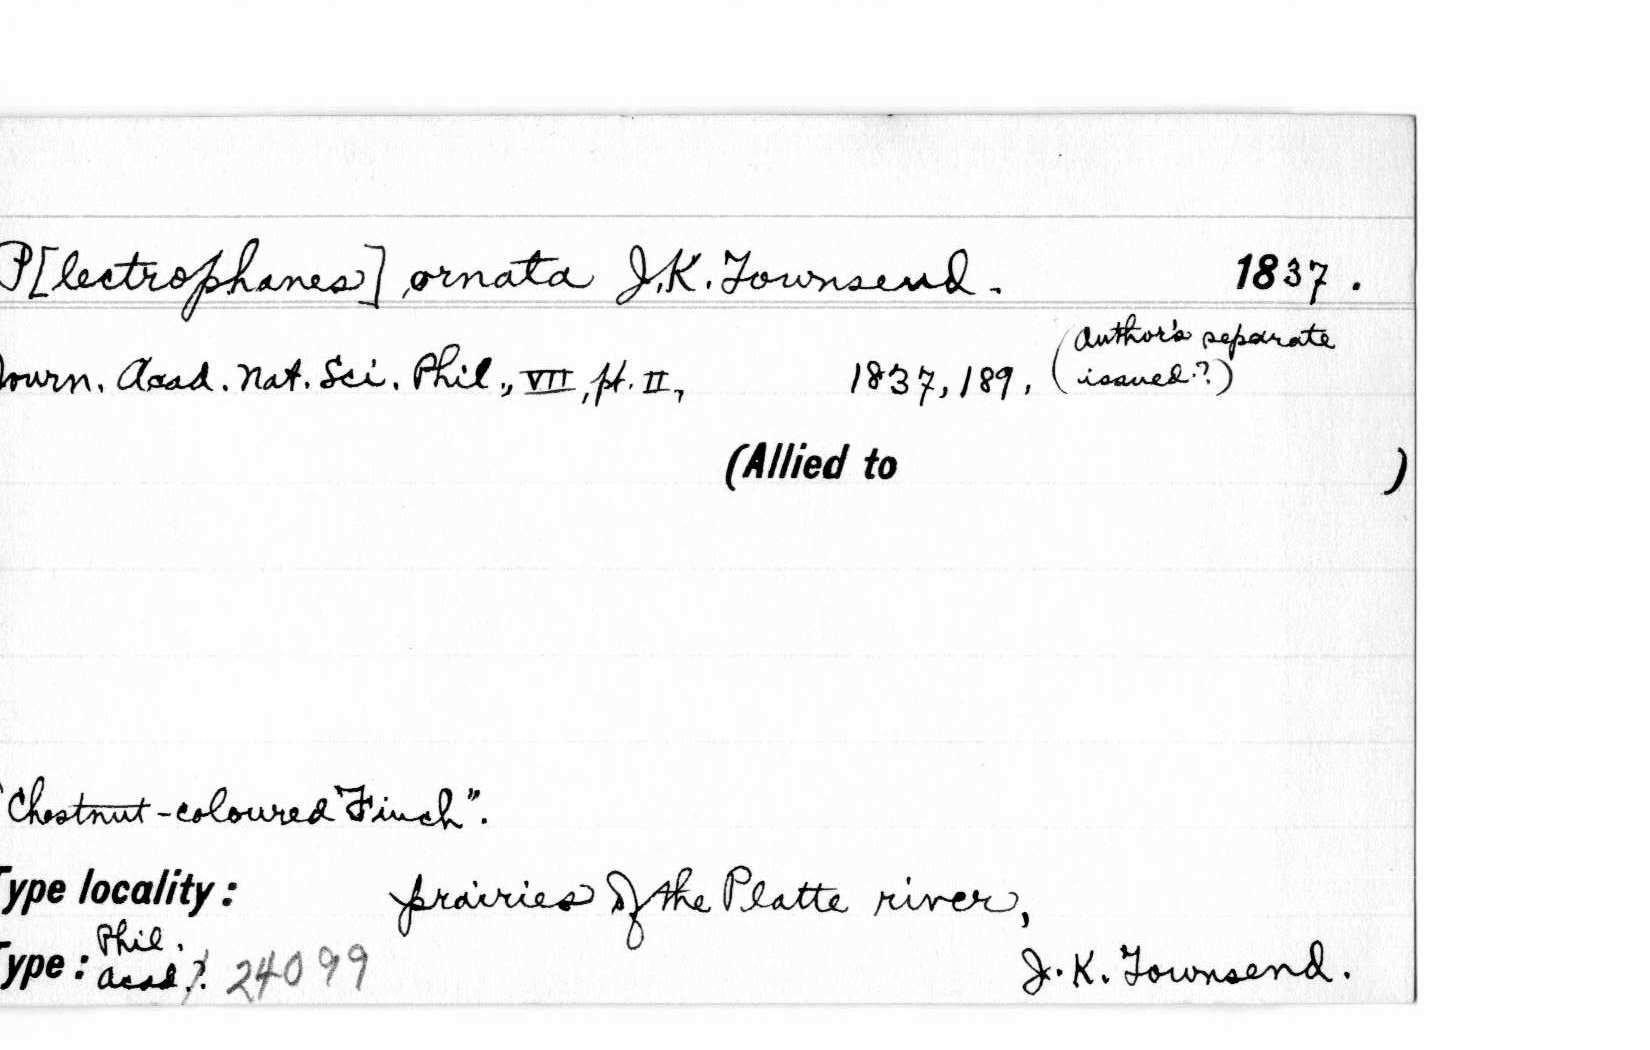 P[lectrophanes] ornata J.K. Townsend. 1837.
Journ. Acad. Nat. Sci. Phil., VII, pt. II, 1837, 189, (Author's separate
issued?)
(Allied to )
"Chestnut-coloured Finch".
Type locality: prairies of the Platte river,
Type: Phil. Acad.? 24099 J. K. Townsend.